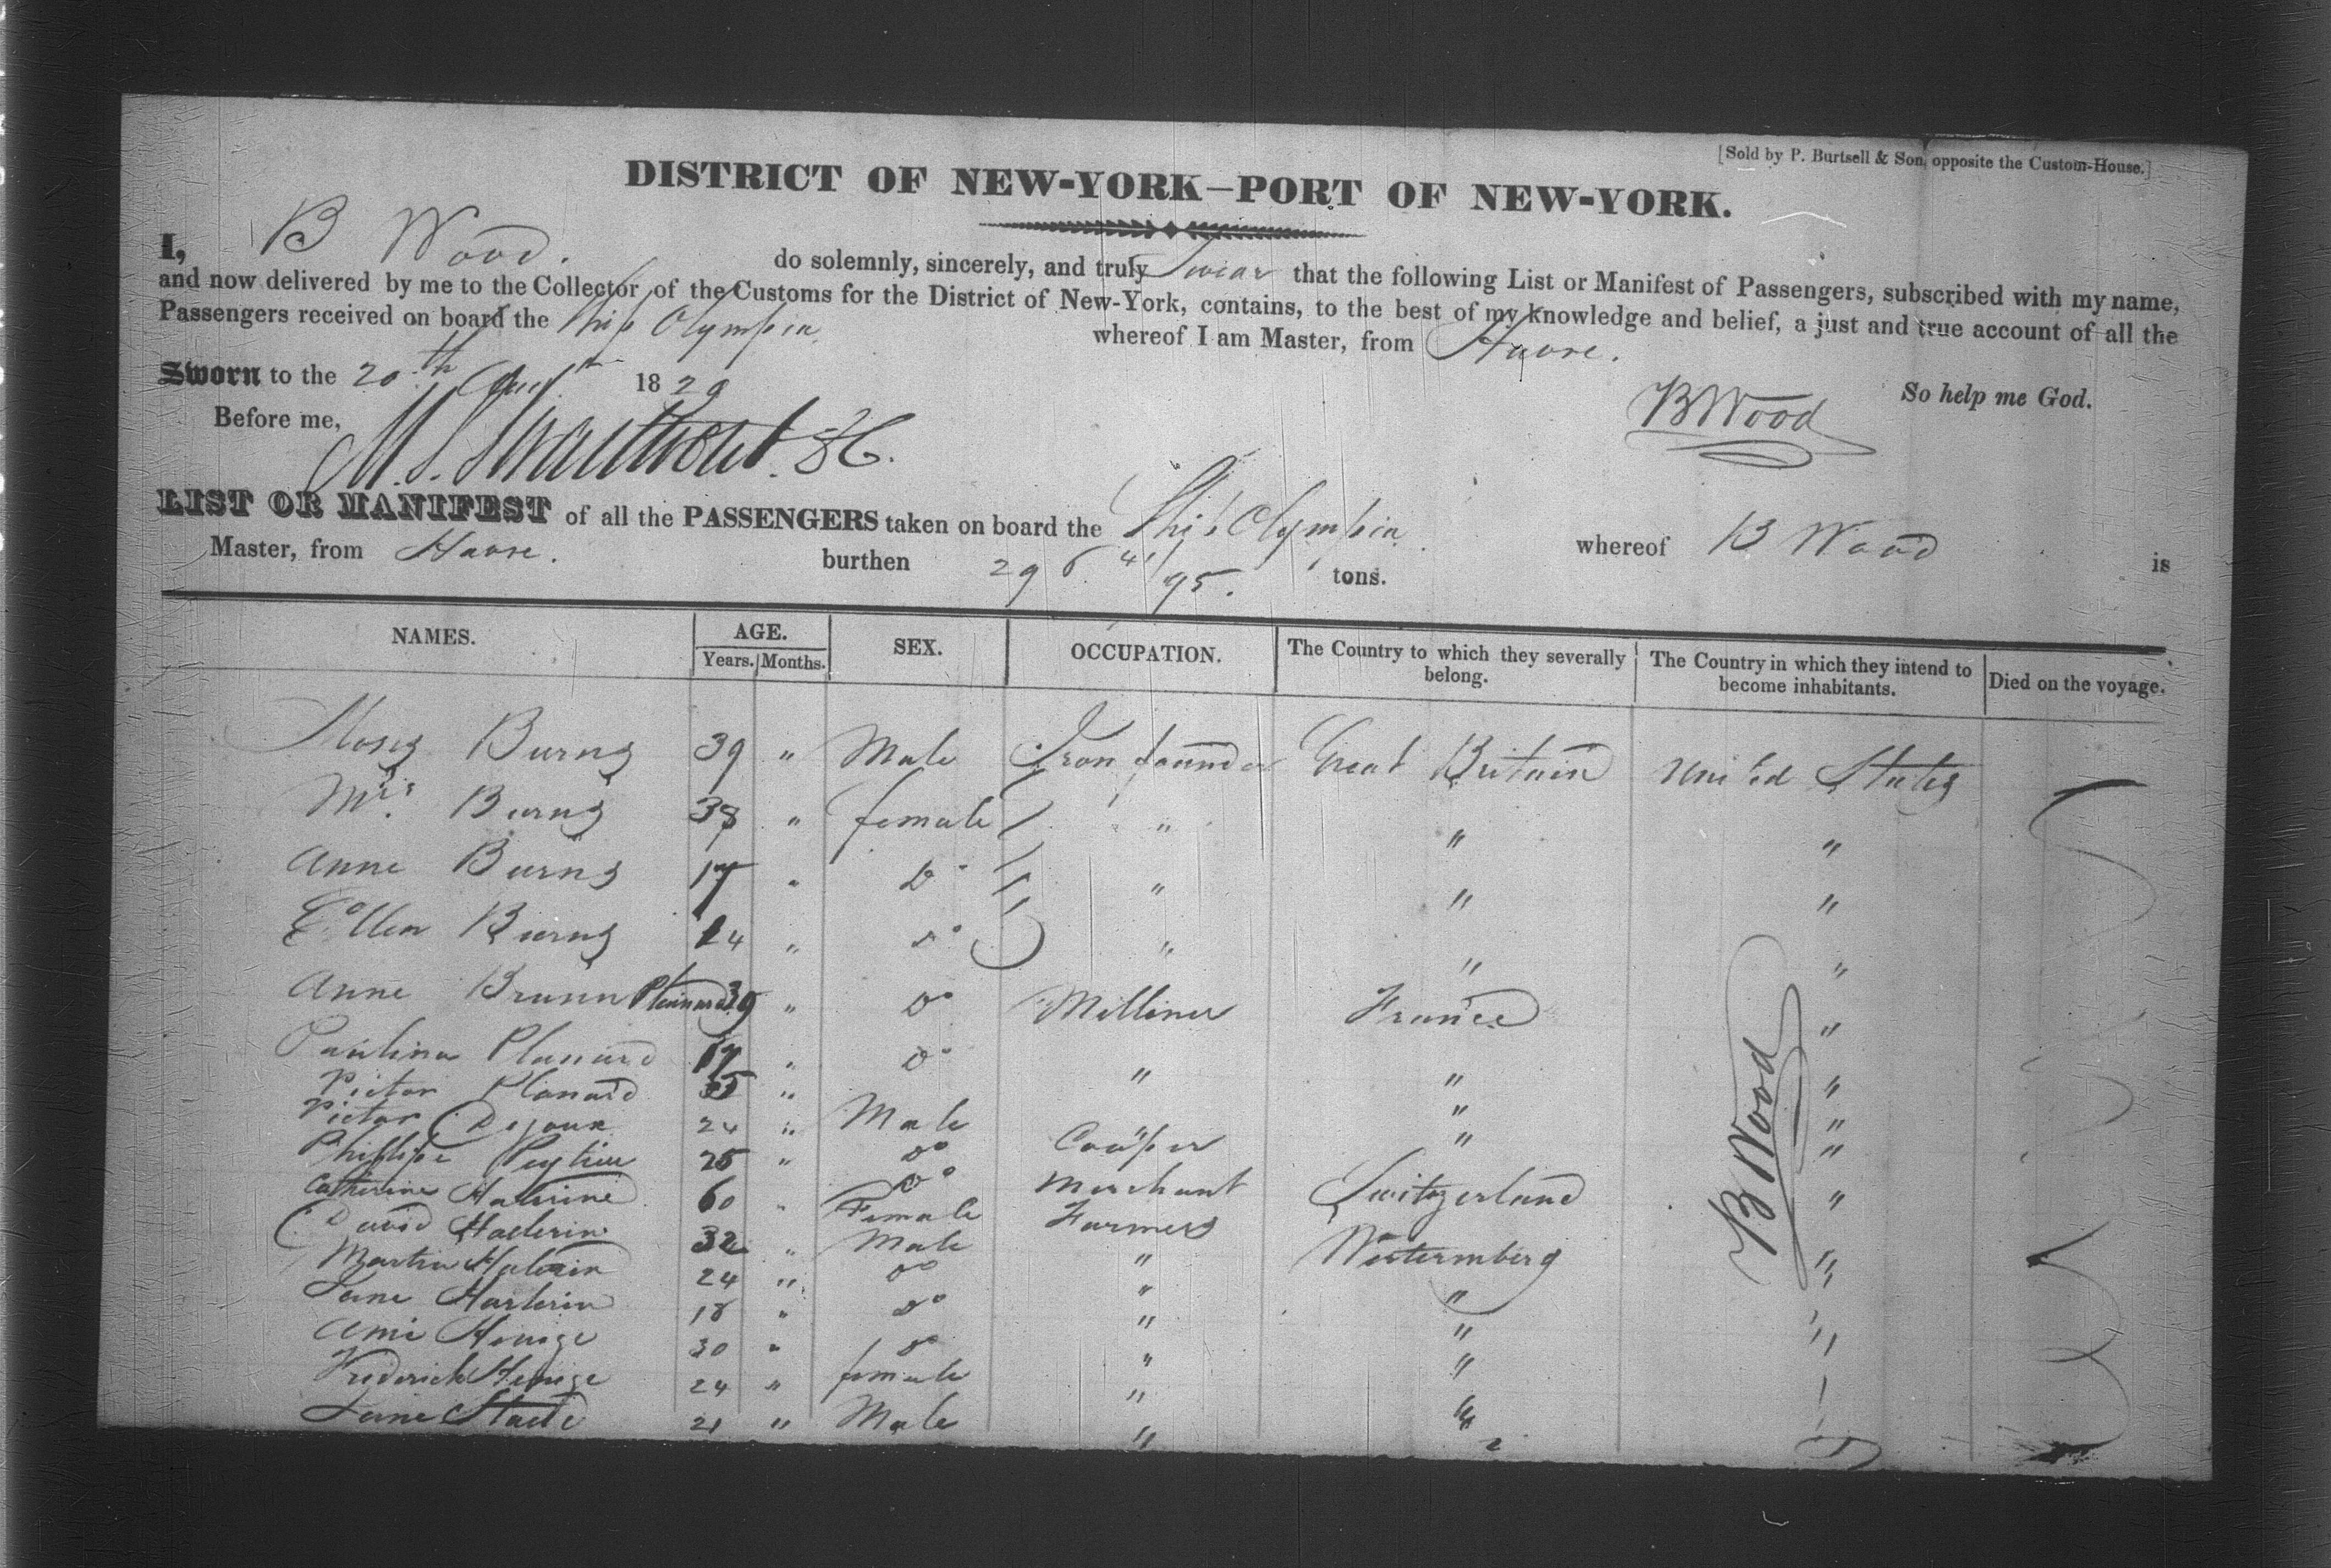 [Sold by P. Burtsell & Son, opposite the Custom-House.]
DISTRICT OF NEW-YORK—PORT OF NEW-YORK.
I, B Wood. do solemnly, sincerely, and truly Swear that the following List or Manifest of Passengers, subscribed with my name,
and now delivered by me to the Collector of the Customs for the District of New-York, contains, to the best of my knowledge and belief, a just and true account of all the
Passengers received on board the Ship Olympia whereof I am Master, from Havre.
Sworn to the 20th 1829 So help me God.
Before me, BWood
LIST OR MANIFEST of all the PASSENGERS taken on board the Ship Olympia whereof B Wood is
Master, from Havre. burthen 296 41/95. tons.
NAMES. AGE. SEX. OCCUPATION. The Country to which they severally belong. The Country in which they intend to become inhabitants. Died on the voyage.
Years. Months.
Moses Burns 39 " Male Iron founder Great Britain United States
Mrs. Burns 38 " female " " "
Anne Burns 17 " Do " " "
Ellen Burns 14 " Do " " "
Anne Brunn 39 " Do Milliner France "
Paulina Planard 17 " Do " " "
Victor Planard 35 " Male " " "
Victor 24 " Do Cooper " "
Phillipe 25 " Do Merchant Switzerland "
Catherine 60 " Female Farmers Wurtemberg "
David Haelerin 32 " Male " "
Martin 24 " Do " "
Jane 18 " Do " "
30 " Do " "
Frederick 24 " female " "
Jane 21 " Male " "
B Wood